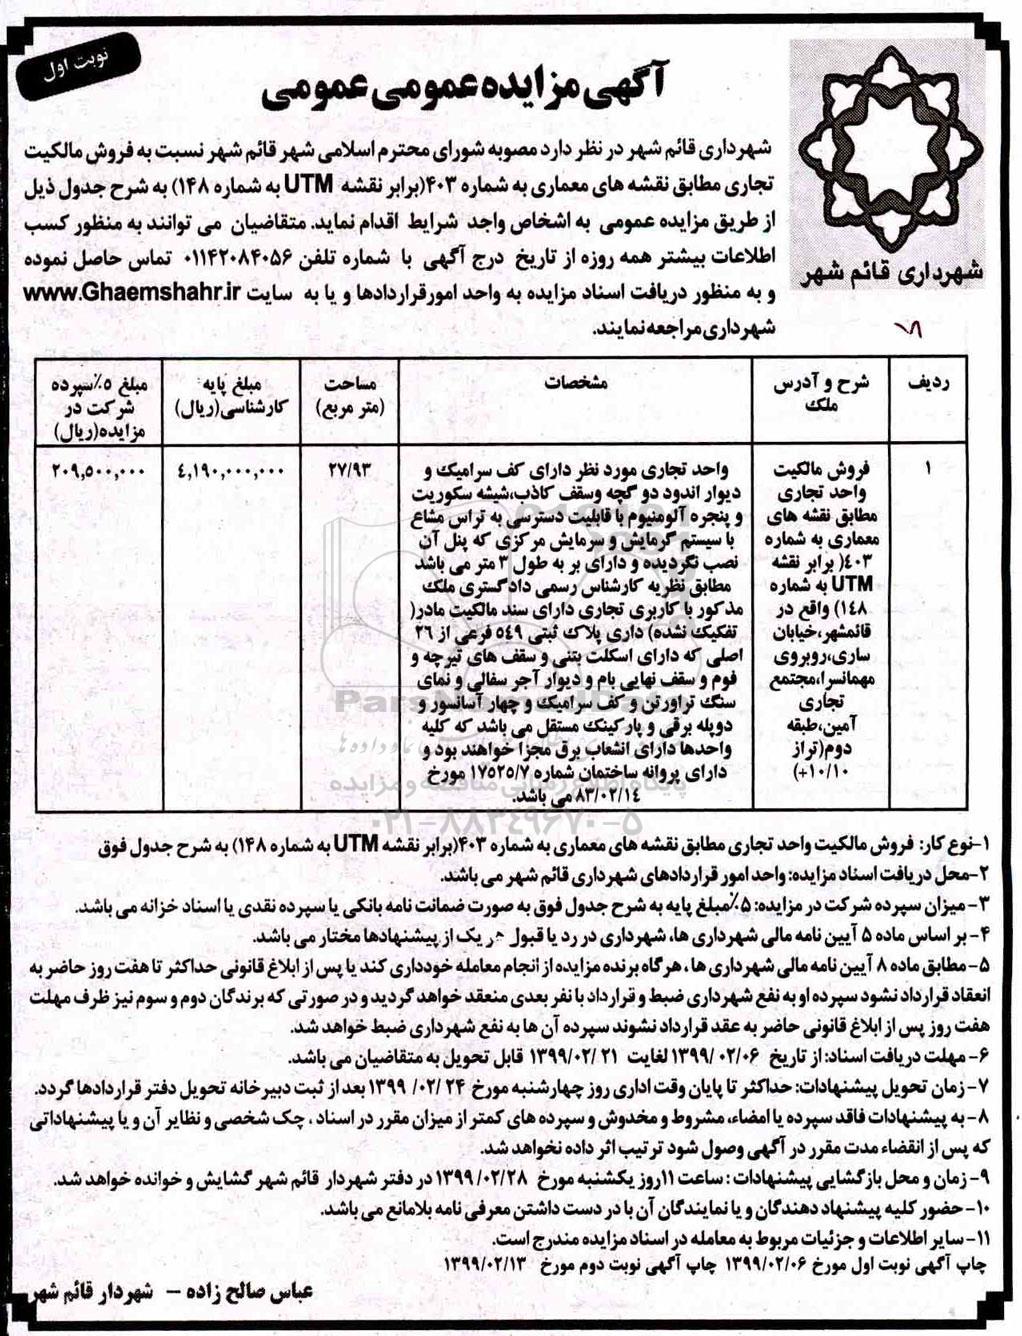 نوبت اول
آگهی مزایده عمومی عمومی
شهرداری قائم شهر
شهرداری قائم شهر در نظر دارد مصوبه شورای محترم اسلامی شهر قائم شهر نسبت به فروش مالکیت
تجاری مطابق نقشه های معماری به شماره ۴۰۳(برابر نقشه UTM به شماره ۱۴۸) به شرح جدول ذیل
از طریق مزایده عمومی به اشخاص واجد شرایط اقدام نماید. متقاضیان می توانند به منظور کسب
اطلاعات بیشتر همه روزه از تاریخ درج آگهی با شماره تلفن ۰۱۱۴۲۰۸۴۰۵۶ تماس حاصل نموده
و به منظور دریافت اسناد مزایده به واحد امور قراردادها و یا به سایت www.Ghaemshahr.ir
شهرداری مراجعه نمایند.
ردیف
شرح و آدرس
ملک
مشخصات
مساحت
(متر مربع)
مبلغ پایه
کارشناسی(ریال)
مبلغ ۵٪سپرده
شرکت در
مزایده(ریال)
۱
فروش مالکیت
واحد تجاری
مطابق نقشه های
معماری به شماره
۴۰۳( برابر نقشه
UTM به شماره
۱۴۸) واقع در
قائمشهر،خیابان
ساری،روبروی
مهمانسرا،مجتمع
تجاری
آمین،طبقه
دوم(تراز
+۱۰/۱۰)
واحد تجاری مورد نظر دارای کف سرامیک و
دیوار اندود دو گچه وسقف کاذب،شیشه سکوریت
و پنجره آلومنیوم با قابلیت دسترسی به تراس مشاع
با سیستم گرمایش و سرمایش مرکزی که پنل آن
نصب نگردیده و دارای بر به طول ۳ متر می باشد
مطابق نظریه کارشناس رسمی دادگستری ملک
مذکور با کاربری تجاری دارای سند مالکیت مادر(
تفکیک نشده) داری پلاک ثبتی ۵۴۹ فرعی از ۲۶
اصلی که دارای اسکلت بتنی و سقف های تیرچه و
فوم و سقف نهایی بام و دیوار آجر سفالی و نمای
سنگ تراورتن و کف سرامیک و چهار آسانسور و
دوپله برقی و پارکینگ مستقل می باشد که کلیه
واحدها دارای انشعاب برق مجزا خواهند بود و
دارای پروانه ساختمان شماره ۱۷۵۲۵/۷ مورخ
۸۳/۰۲/۱۴ می باشد.
۲۷/۹۳
۴,۱۹۰,۰۰۰,۰۰۰
۲۰۹,۵۰۰,۰۰۰
ParsNamadData
پایگاه اطلاع رسانی مناقصه و مزایده
۰۲۱-۸۸۳۴۹۶۷۰-۵
۱-نوع کار: فروش مالکیت واحد تجاری مطابق نقشه های معماری به شماره ۴۰۳(برابر نقشه UTM به شماره ۱۴۸) به شرح جدول فوق
۲-محل دریافت اسناد مزایده: واحد امور قراردادهای شهرداری قائم شهر می باشد.
۳- میزان سپرده شرکت در مزایده: ۵٪مبلغ پایه به شرح جدول فوق به صورت ضمانت نامه بانکی یا سپرده نقدی یا اسناد خزانه می باشد.
۴- بر اساس ماده ۵ آیین نامه مالی شهرداری ها، شهرداری در رد یا قبول هر یک از پیشنهادها مختار می باشد.
۵- مطابق ماده ۸ آیین نامه مالی شهرداری ها ، هر گاه برنده مزایده از انجام معامله خودداری کند یا پس از ابلاغ قانونی حداکثر تا هفت روز حاضر به
انعقاد قرارداد نشود سپرده او به نفع شهرداری ضبط و قرارداد با نفر بعدی منعقد خواهد گردید و در صورتی که برندگان دوم و سوم نیز ظرف مهلت
هفت روز پس از ابلاغ قانونی حاضر به عقد قرارداد نشوند سپرده آن ها به نفع شهرداری ضبط خواهد شد.
۶- مهلت دریافت اسناد: از تاریخ ۱۳۹۹/۰۲/۰۶ لغایت ۱۳۹۹/۰۲/۲۱ قابل تحویل به متقاضیان می باشد.
۷- زمان تحویل پیشنهادات: حداکثر تا پایان وقت اداری روز چهارشنبه مورخ ۱۳۹۹/۰۲/۲۴ بعد از ثبت دبیرخانه تحویل دفتر قراردادها گردد.
۸- به پیشنهادات فاقد سپرده یا امضاء، مشروط و مخدوش و سپرده های کمتر از میزان مقرر در اسناد ، چک شخصی و نظایر آن و یا پیشنهاداتی
که پس از انقضاء مدت مقرر در آگهی وصول شود ترتیب اثر داده نخواهد شد.
۹- زمان و محل بازگشایی پیشنهادات : ساعت ۱۱روز یکشنبه مورخ ۱۳۹۹/۰۲/۲۸ در دفتر شهردار قائم شهر گشایش و خوانده خواهد شد.
۱۰- حضور کلیه پیشنهاد دهندگان و یا نمایندگان آن با در دست داشتن معرفی نامه بلامانع می باشد.
۱۱- سایر اطلاعات و جزئیات مربوط به معامله در اسناد مزایده مندرج است.
چاپ آگهی نوبت اول مورخ ۱۳۹۹/۰۲/۰۶ چاپ آگهی نوبت دوم مورخ ۱۳۹۹/۰۲/۱۳
عباس صالح زاده - شهردار قائم شهر